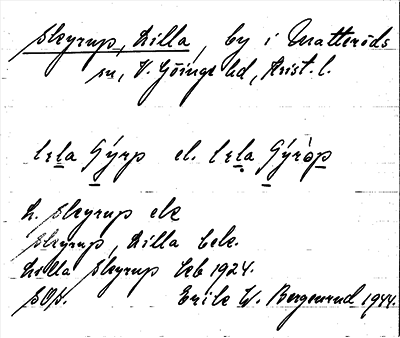 Skyrup, Lilla, by i Matteröds
sn, V. Göinge hd, Krist. l.
lɛla Gýrp el. lɛla Gýròp
L. Skyrup ek
Skyrup, Lilla bek.
Lilla Skyrup kb 1924.
SOS. Erik W. Bergenrud 1944.